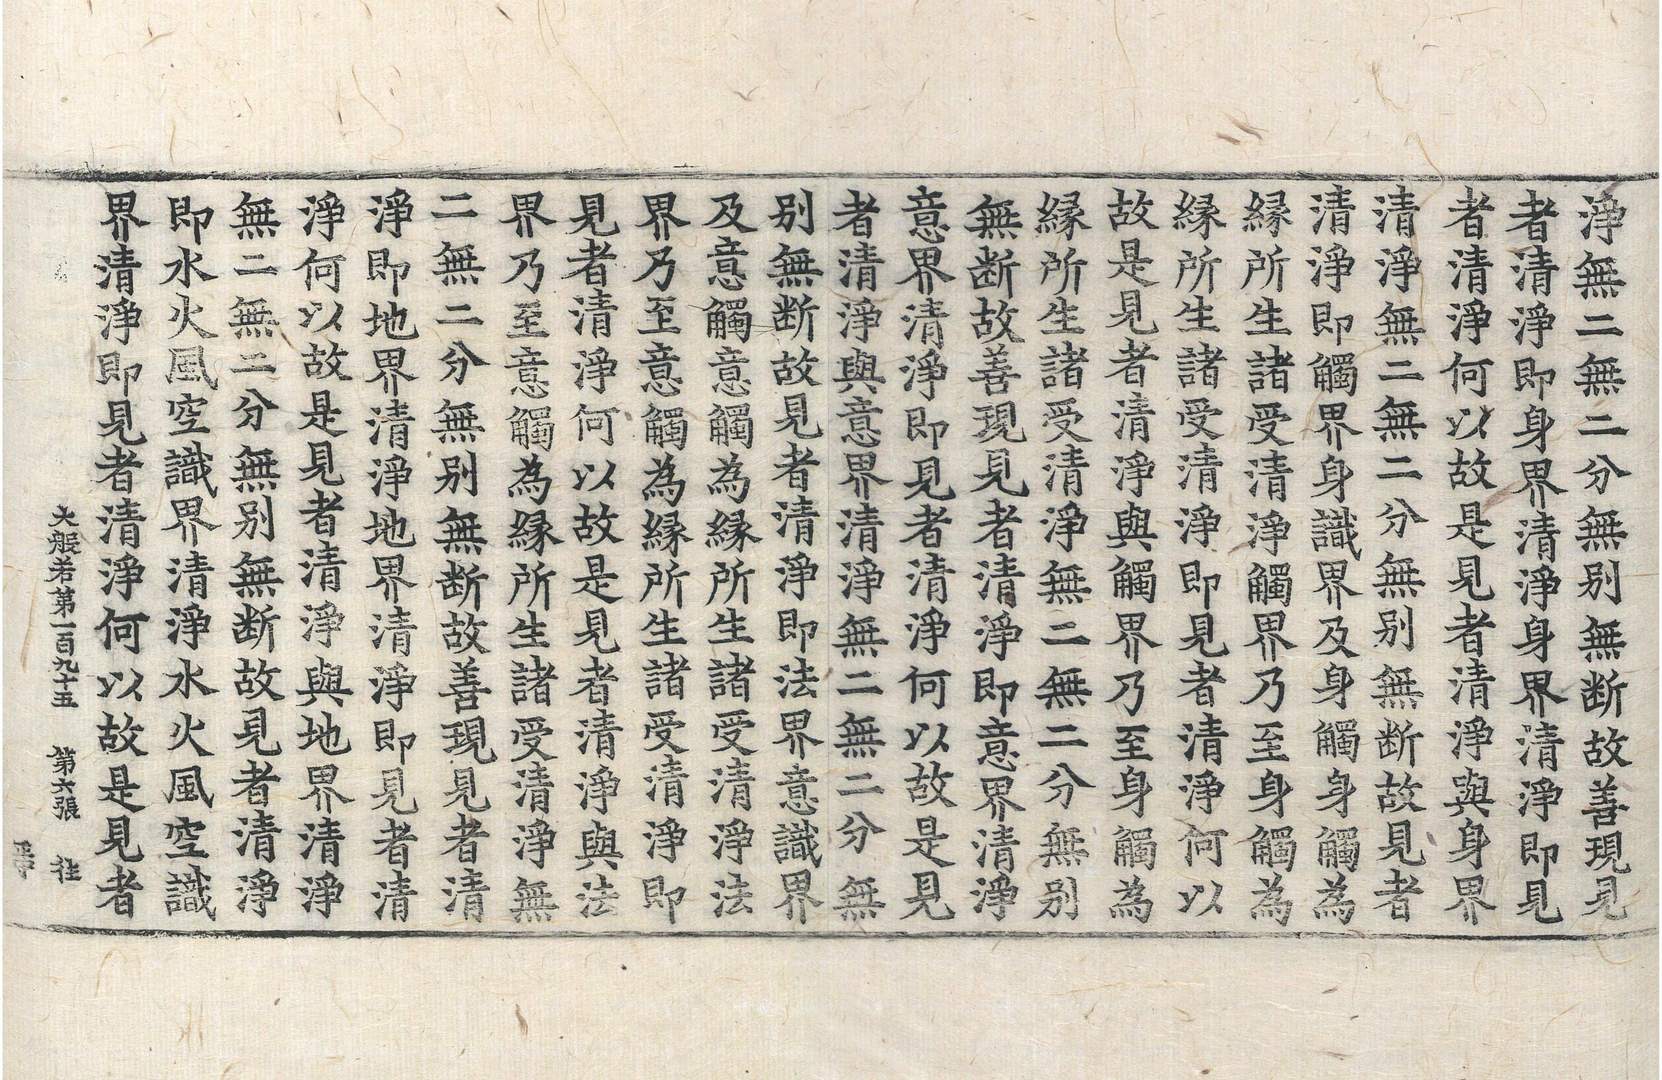 淨無二無二分無别無断故善現見
者清淨即身界清淨身界清淨即見
者清淨何以故是見者清淨與身界
清淨無二無二分無别無断故見者
清淨即觸界身識界及身觸身觸為
縁所生諸受清淨觸界乃至身觸為
縁所生諸受清淨即見者清淨何以
故是見者清淨與觸界乃至身觸為
縁所生諸受清淨無二無二分無别
無断故善現見者清淨即意界清淨
意界清淨即見者清淨何以故是見
者清淨與意界清淨無二無二分無
别無断故見者清淨即法界意識界
及意觸意觸為縁所生諸受清淨法
界乃至意觸為縁所生諸受清淨即
見者清淨何以故是見者清淨與法
界乃至意觸為縁所生諸受清淨無
二無二分無别無断故善現見者清
淨即地界清淨地界清淨即見者清
淨何以故是見者清淨與地界清淨
無二無二分無别無断故見者清淨
即水火風空識界清淨水火風空識
界清淨即見者清淨何以故是見者
大般若第一百九十五 第六張 往